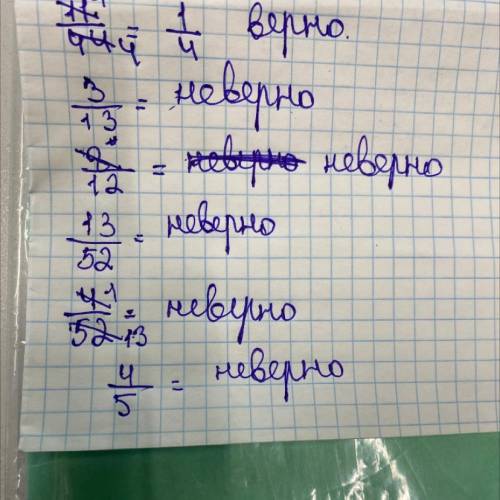 11/44 4 = 1/4 верно.
3/13 = неверно
9/12 = неверно неверно
13/52 = неверно
4 1/52 13 = неверно
4/5 = неверно